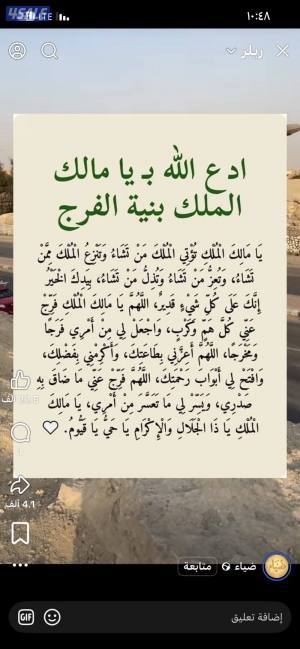 ١٠:٤٨
LTE
ريلز
ادع الله بـ يا مالك
الملك بنية الفرج
يَا مَالِكَ الْمُلْكِ تُؤْتِي الْمُلْكَ مَنْ تَشَاءُ وَتَنْزِعُ الْمُلْكَ مِمَّنْ
تَشَاءُ، وَتُعِزُّ مَنْ تَشَاءُ وَتُذِلُّ مَنْ تَشَاءُ، بِيَدِكَ الْخَيْرُ
إِنَّكَ عَلَى كُلِّ شَيْءٍ قَدِيرٌ، اللَّهُمَّ يَا مَالِكَ الْمُلْكِ فَرِّجْ
عَنِّي كُلَّ هَمٍّ وَكَرْبٍ، وَاجْعَلْ لِي مِنْ أَمْرِي فَرَجًا
وَمَخْرَجًا، اللَّهُمَّ أَعِزَّنِي بِطَاعَتِكَ، وَأَكْرِمْنِي بِفَضْلِكَ،
وَافْتَحْ لِي أَبْوَابَ رَحْمَتِكَ، اللَّهُمَّ فَرِّجْ عَنِّي مَا ضَاقَ بِهِ
صَدْرِي، وَيَسِّرْ لِي مَا تَعَسَّرَ مِنْ أَمْرِي، يَا مَالِكَ
الْمُلْكِ يَا ذَا الْجَلَالِ وَالْإِكْرَامِ يَا حَيُّ يَا قَيُّومُ. ♡
ألف
4.1 ألف
ضياء
متابعة
إضافة تعليق
GIF